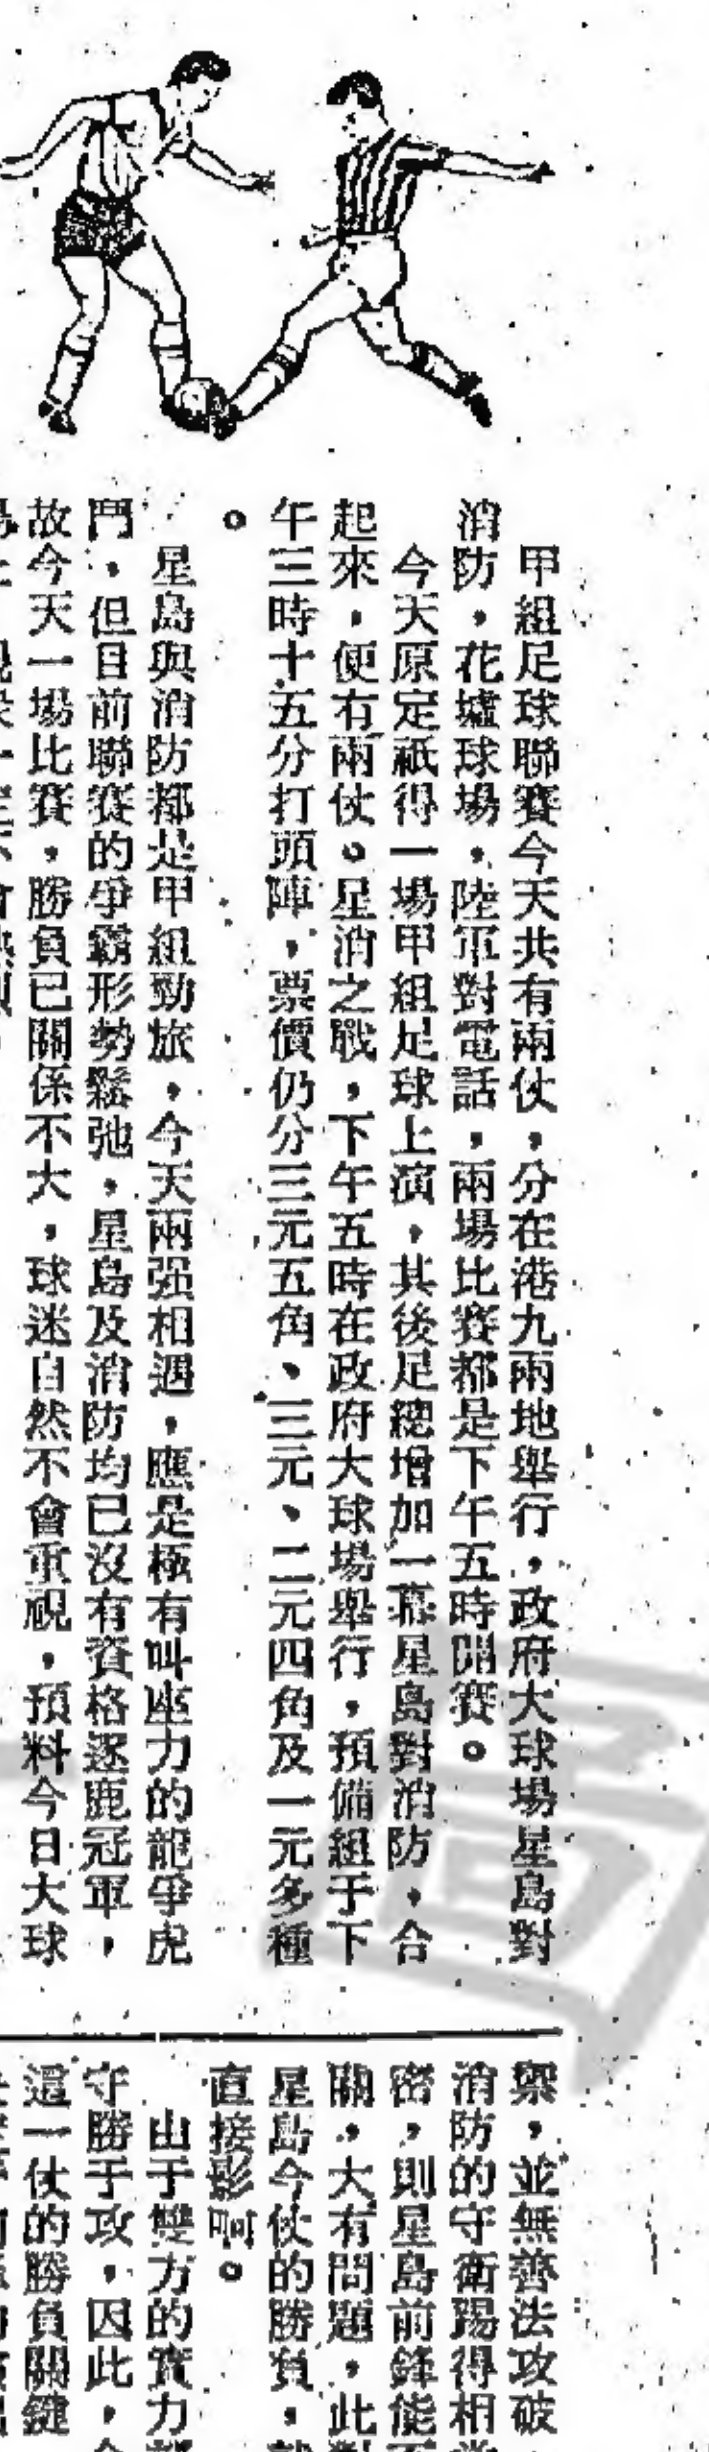 甲組足球聯賽今天共有兩仗，分在港九兩地舉行，政府大球場星島對
消防，花墟球場，陸軍對電話，兩場比賽都是下午五時開賽。
今天原定祇得一場甲組足球上演，其後足總增加一幕星島對消防，合
起來，便有兩仗。星消之戰，下午五時在政府大球場舉行，預備組于下
午三時十五分打頭陣，票價仍分三元五角、三元、二元四角及一元多種
。
星島與消防都是甲組勁旅，今天兩强相遇，應是極有叫座力的龍爭虎
鬥，但目前聯賽的爭霸形勢鬆弛，星島及消防均已沒有資格逐鹿冠軍，
故今天一場比賽，勝負已關係不大，球迷自然不會重視，預料今日大球
禦，並無善法攻破，
消防的守衛踢得相當
密，則星島前鋒能否
關，大有問題，此對
星島今仗的勝負，
直接影响。
由于雙方的實力都
守勝于攻，因此，
這一仗的勝負關鍵